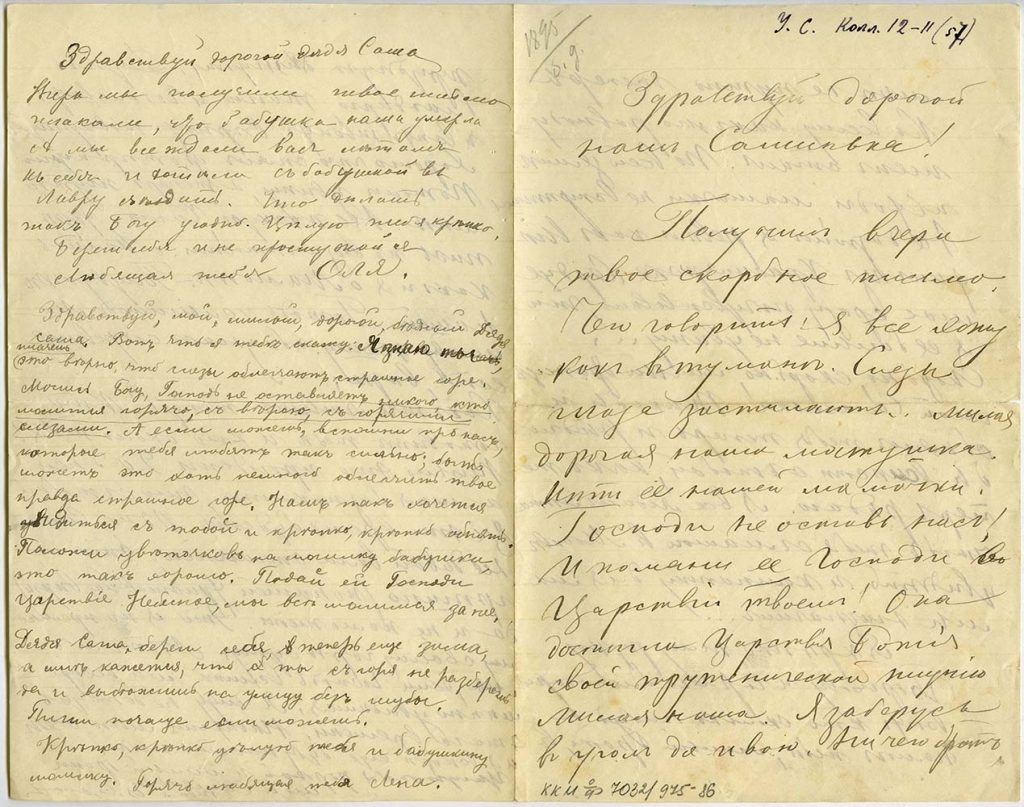 Здравствуй дорогой дядя Саша
Вчера мы получили твое письмо
плакали, что бабушка наша умерла
А мы все ждали Васъ
къ себѣ и съ бабушкой въ
Лавру Что дѣлать
такъ Богу угодно. Цѣлую тебя крѣпко.
Береги себя и не простужайся
Любящая тебя Оля.
Здравствуй, мой, милый, дорогой, бѣдный Дядя
Саша. Вотъ что я тебѣ скажу. Я знаю ты
плачешь
это вѣрно, что слезы облегчаютъ страшное горе.
Молись Богу, Господь не оставляетъ никого кто
молится горячо, съ вѣрою, съ горячими
слезами. А если можешь, вспомни про насъ,
которые тебя любятъ такъ сильно; быть
можетъ это хоть немного облегчитъ твое
правда страшное горе. Намъ такъ хочется
увидиться съ тобой и крѣпко, крѣпко обнять.
Положи цвѣточковъ на могилку бабушки,
это такъ хорошо. Подай ей Господи
Царствіе Небесное, мы всѣ молимся за нее.
Дядя Саша, береги себя, теперь еще зима,
а мнѣ кажется, что ты съ горя не разберешь
да и выбѣжишь на улицу безъ шубы.
Пиши почаще если можешь.
Крѣпко, крѣпко цѣлую тебя и бабушкину
могилку. Горячо любящая тебя Лена.
1895
г.
У. С. Колл. 12-11 (57)
Здравствуй дорогой
нашъ Сашинька!
Получили вчера
твое скорбное письмо.
Что говорить! Я все хожу
какъ въ туманѣ. Слезы
глаза застилаютъ. Милая
дорогая наша матушка.
Нѣтъ ее нашей мамочки.
Господи не оставь насъ!
И помяни ее Господи во
Царствіи твоемъ! Она
достигла Царствія Божія
своей труженической жизнію
Милая наша. Я заберусь
въ уголъ да и вою. Ничего братъ
ККМ оф 7032/975-86